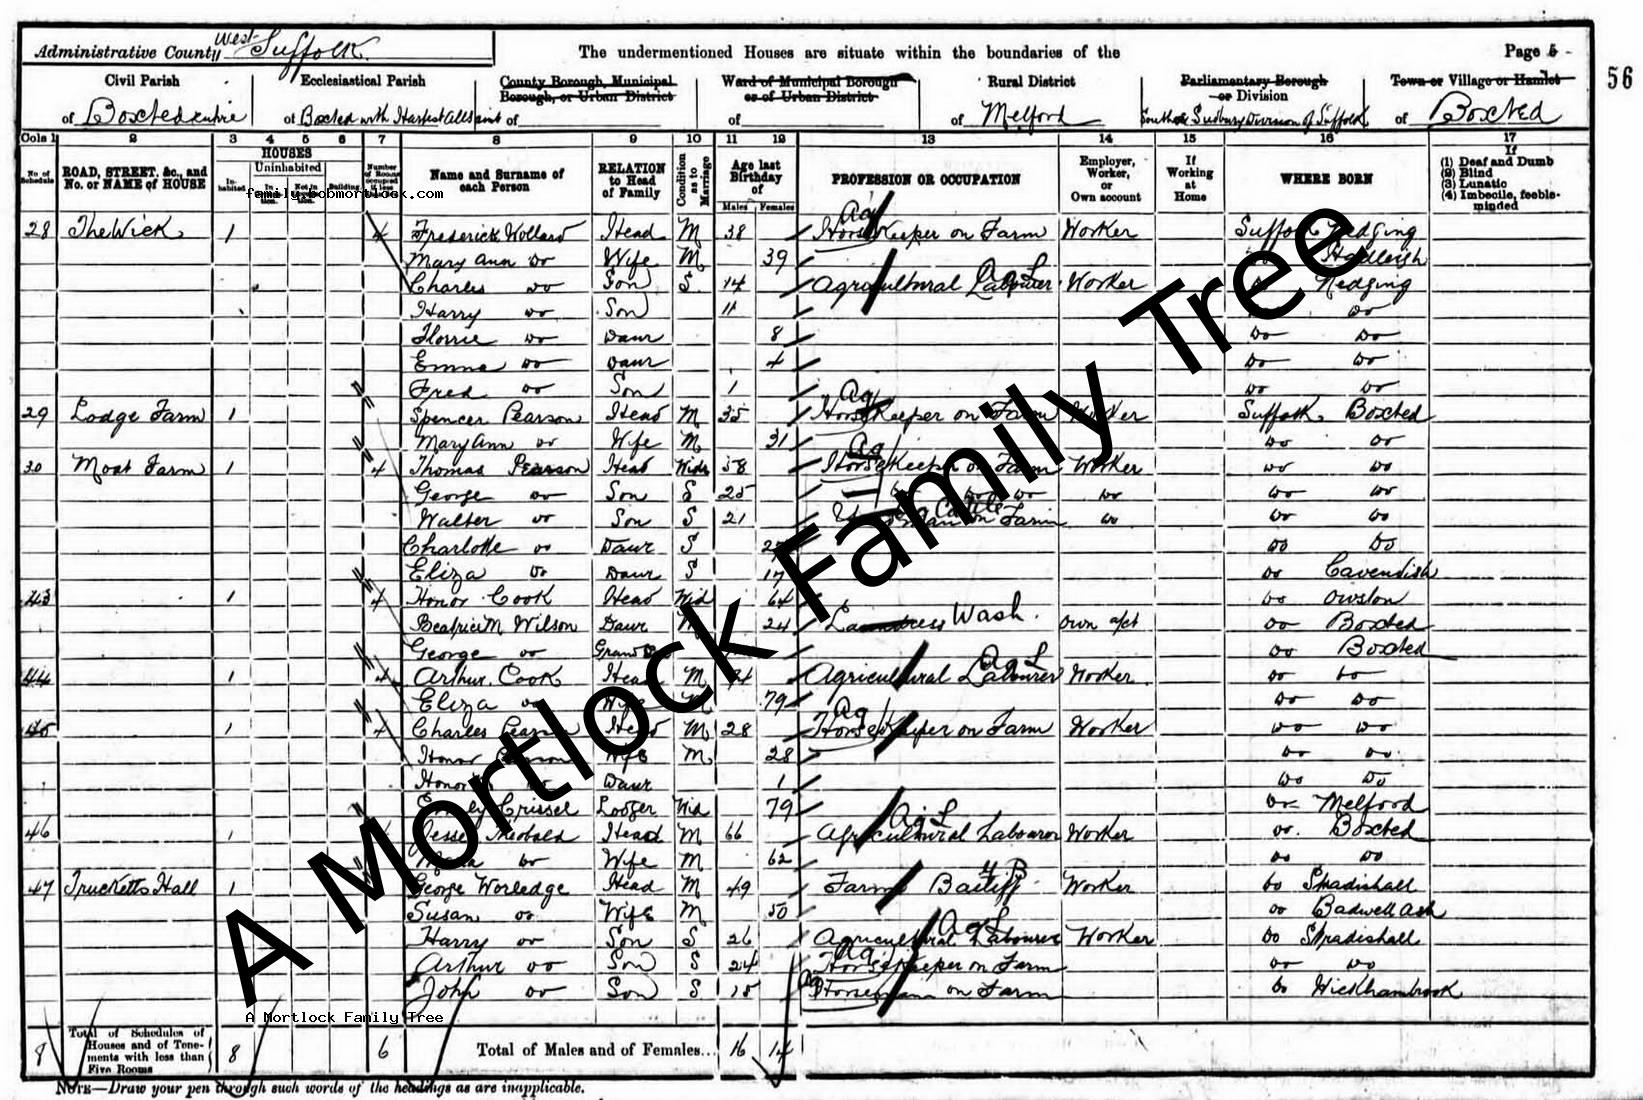 Administrative County West Suffolk The undermentioned Houses are situate within the boundaries of the Page 5
56
Civil Parish Ecclesiastical Parish County Borough, Municipal Borough, or Urban District Ward of Municipal Borough or of Urban District Rural District Parliamentary Borough or Division Town or Village or Hamlet
of Boxted entire of Boxted with Hartest All Saint of of of Melford South or Sudbury Division of Suffolk of Boxted
Cols 1 2 3 4 5 6 7 8 9 10 11 12 13 14 15 16 17
No. of Schedule ROAD, STREET, &c., and No. or NAME of HOUSE HOUSES Inhabited Uninhabited Building Number of Rooms occupied if less than five Name and Surname of each Person RELATION to Head of Family Condition as to Marriage Age last Birthday of Males Females PROFESSION OR OCCUPATION Employer, Worker, or Own account If Working at Home WHERE BORN If (1) Deaf and Dumb (2) Blind (3) Lunatic (4) Imbecile, feeble-minded
family.bobmortlock.com
28 The Wick 1 4 Frederick Wollard Head M 38 Horsekeeper on Farm Ag Worker Suffolk Nedging
Mary Ann do Wife M 39 do Hadleigh
Charles do Son S 14 Agricultural Labourer Ag L Worker do Nedging
Harry do Son 11 do
Florrie do Daur 8 do do
Emma do Daur 4 do do
Fred do Son 1 do do
29 Lodge Farm 1 Spencer Pearson Head M 35 Horsekeeper on Farm Ag Worker Suffolk Boxted
Mary Ann do Wife M 31 do do
30 Moat Farm 1 4 Thomas Pearson Head Widr 58 Horsekeeper on Farm Ag Worker do do
George do Son S 25 do do do do do
Walter do Son S 21 Cattle on Farm do do do
Charlotte do Daur S do do
Eliza do Daur S 17 do Cavendish
43 1 4 Honor Cook Head Wid 64 do
Beatrice M Wilson Daur M 24 Laundress Wash. own a/ct do Boxted
George do Grandson do Boxted
44 1 4 Arthur Cook Head M Agricultural Labourer Ag L Worker do do
Eliza do Wife M 79 do do
45 1 4 Charles Pearson Head M 28 Horsekeeper on Farm Ag Worker do do
Honor Pearson Wife M 28 do do
Honor do Daur 1 do do
Emily Crissel Lodger Wid 79 do Melford
46 1 Jesse Theobald Head M 66 Agricultural Labourer Ag L Worker do Boxted
Maria do Wife M 62 do do
47 Trucketts Hall 1 George Worledge Head M 49 Farm Bailiff Worker do Stradishall
Susan do Wife M 50 do Badwell Ash
Harry do Son S 26 Agricultural Labourer Ag L Worker do Stradishall
Arthur do Son S 24 Horsekeeper on Farm Ag do do
John do Son S 18 Horseman on Farm Ag do Wickhambrook
A Mortlock Family Tree
A Mortlock Family Tree
8 Total of Schedules of Houses and of Tenements with less than Five Rooms 8 6 Total of Males and of Females... 16 14
NOTE—Draw your pen through such words of the headings as are inapplicable.